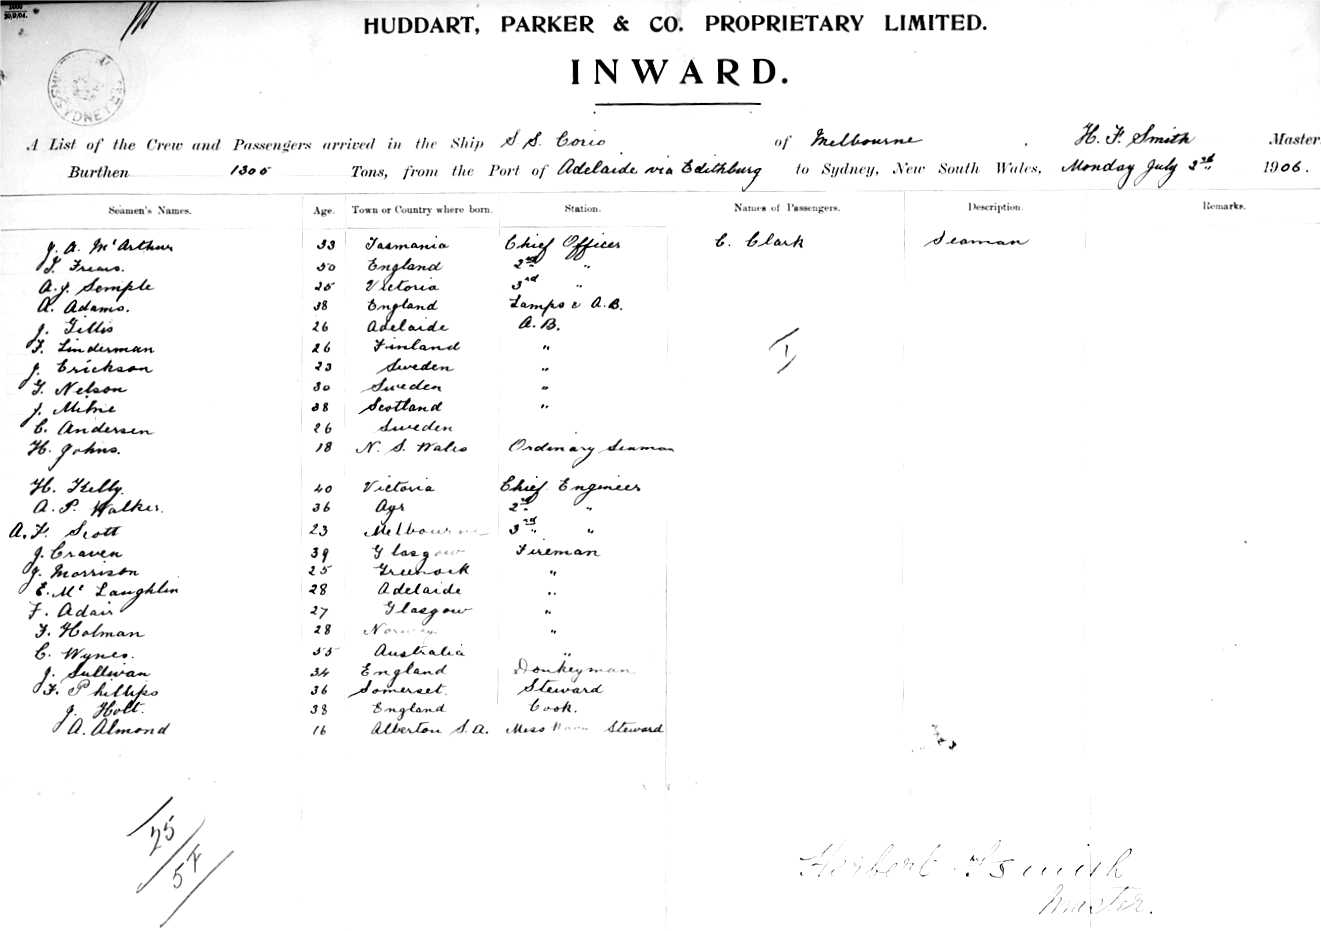 HUDDART, PARKER & CO. PROPRIETARY LIMITED.
INWARD.
SYDNEY
A List of the Crew and Passengers arrived in the Ship S S. Corio of Melbourne, H. F. Smith Master
Burthen 1305 Tons, from the Port of Adelaide via Edithburg to Sydney, New South Wales, Monday July 2nd 1906.
Seamen's Names. Age. Town or Country where born. Station. Names of Passengers. Description. Remarks.
J. A. McArthur 33 Tasmania Chief Officer C. Clark Seaman
50 England 2nd "
A. J. Semple 25 Victoria 3rd "
A. Adams. 38 England Lamps & A.B.
J. Gillis 26 Adelaide A.B.
F. Linderman 26 Finland "
J. Erickson 23 Sweden "
G. Nelson 30 Sweden "
J. Milne 38 Scotland "
C. Andersen 26 Sweden
H. Johns. 18 N. S. Wales Ordinary Seaman
H. Kelly. 40 Victoria Chief Engineer
A. P. Walker. 36 Ayr 2nd "
A. F. Scott 23 Melbourne 3rd "
J. Craven 39 Glasgow Fireman
J. Morrison 25 Greenock "
E. Mc Laughlin 28 Adelaide "
F. Adair 27 Glasgow "
F. Holman 28 Norway "
C. Wynes. 55 Australia "
J. Sullivan 34 England Donkeyman
F. Phillips 36 Somerset. Steward
J. Holt. 38 England Cook.
A. Almond 16 Alberton S.A. Mess Room Steward
1
25
57
Herbert F Smith
Master.